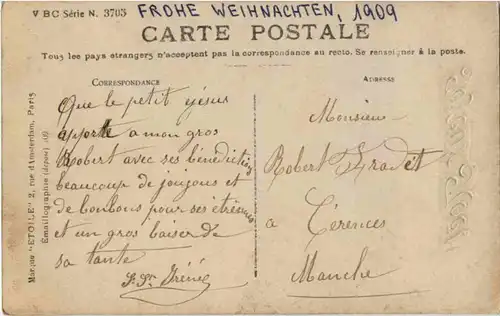 V BC Série N. 3705
FROHE WEIHNACHTEN, 1909
CARTE POSTALE
Tous les pays étrangers n'acceptent pas la correspondance au recto. Se renseigner à la poste.
CORRESPONDANCE
ADRESSE
Que le petit jésus
apporte a mon gros
Robert avec ses bénédictions
beaucoup de joujous et
de bonbons pour ses étrennes
et un gros baiser de
sa tante
Irénée
Monsieur
Robert
à Cérences
Manche
Marque "ETOILE" 2, rue d'Amsterdam, Paris
Émaillographie (déposé)